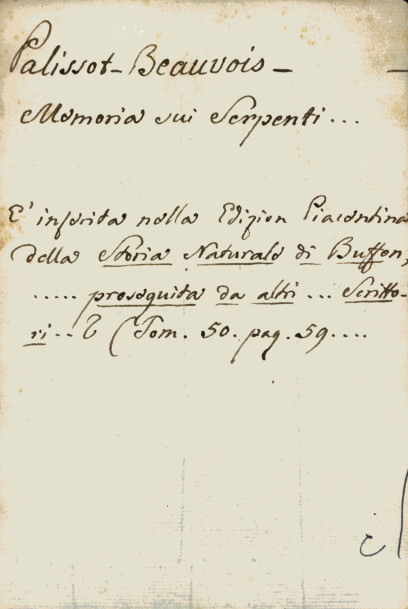 Palissot-Beauvois-
Memoria sui Serpenti...
E' inserita nella Edizion Piacentina
della Storia Naturale di Buffon,
..... proseguita da altri ... Scritto-
ri... (Tom. 50. pag. 59....